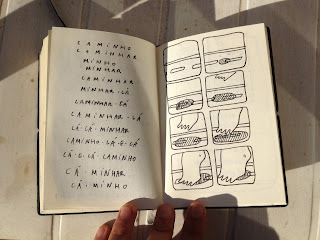 CAMINHO
CAMINHAR
MINHO
MINHAR
CAMINHAR
MINHAR-LÁ
CAMINHAR-CÁ
CAMINHAR-LÁ
LÁ-CÁ-MINHAR
CAMINHO-LÁ-E-CÁ
CÁ-E-LÁ-CAMINHO
CÁ-MINHAR
CÁ-MINHO